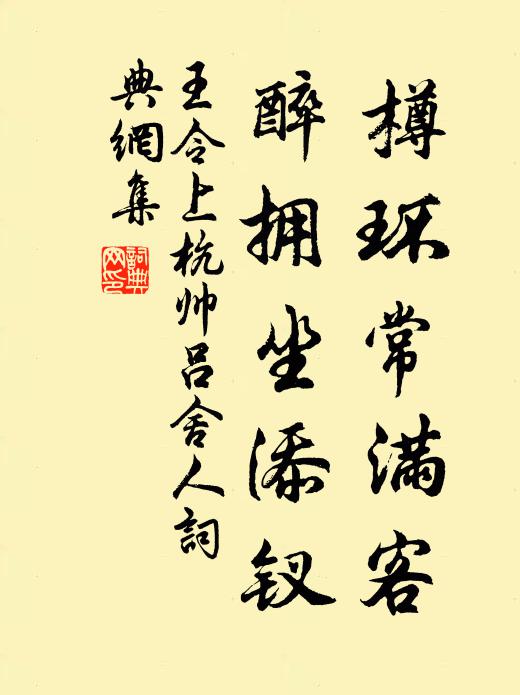 樽环常满客
醉拥坐添钗
王令上杭帅吕舍人詞
典網集
詞典
网印